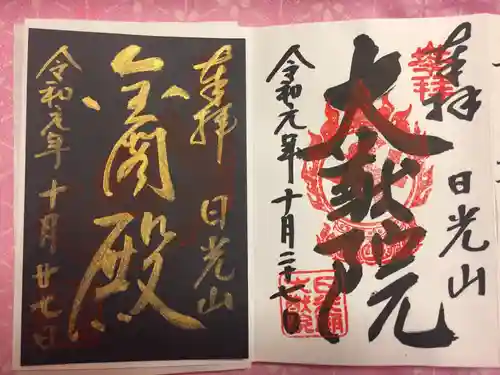 奉拝
日光山
大猷院
令和元年十月二十七日
奉拝
日光山
金閣殿
令和元年十月廿七日